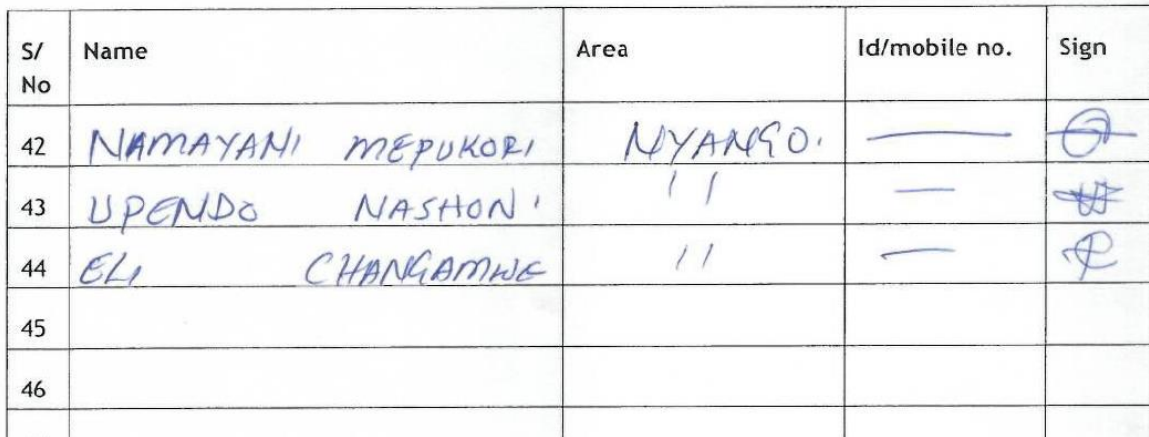 S/No Name Area Id/mobile no. Sign
42 NAMAYANI MEPUKORI NYANGO. —
43 UPENDO NASHONI " —
44 ELI CHANGAMWE " —
45
46